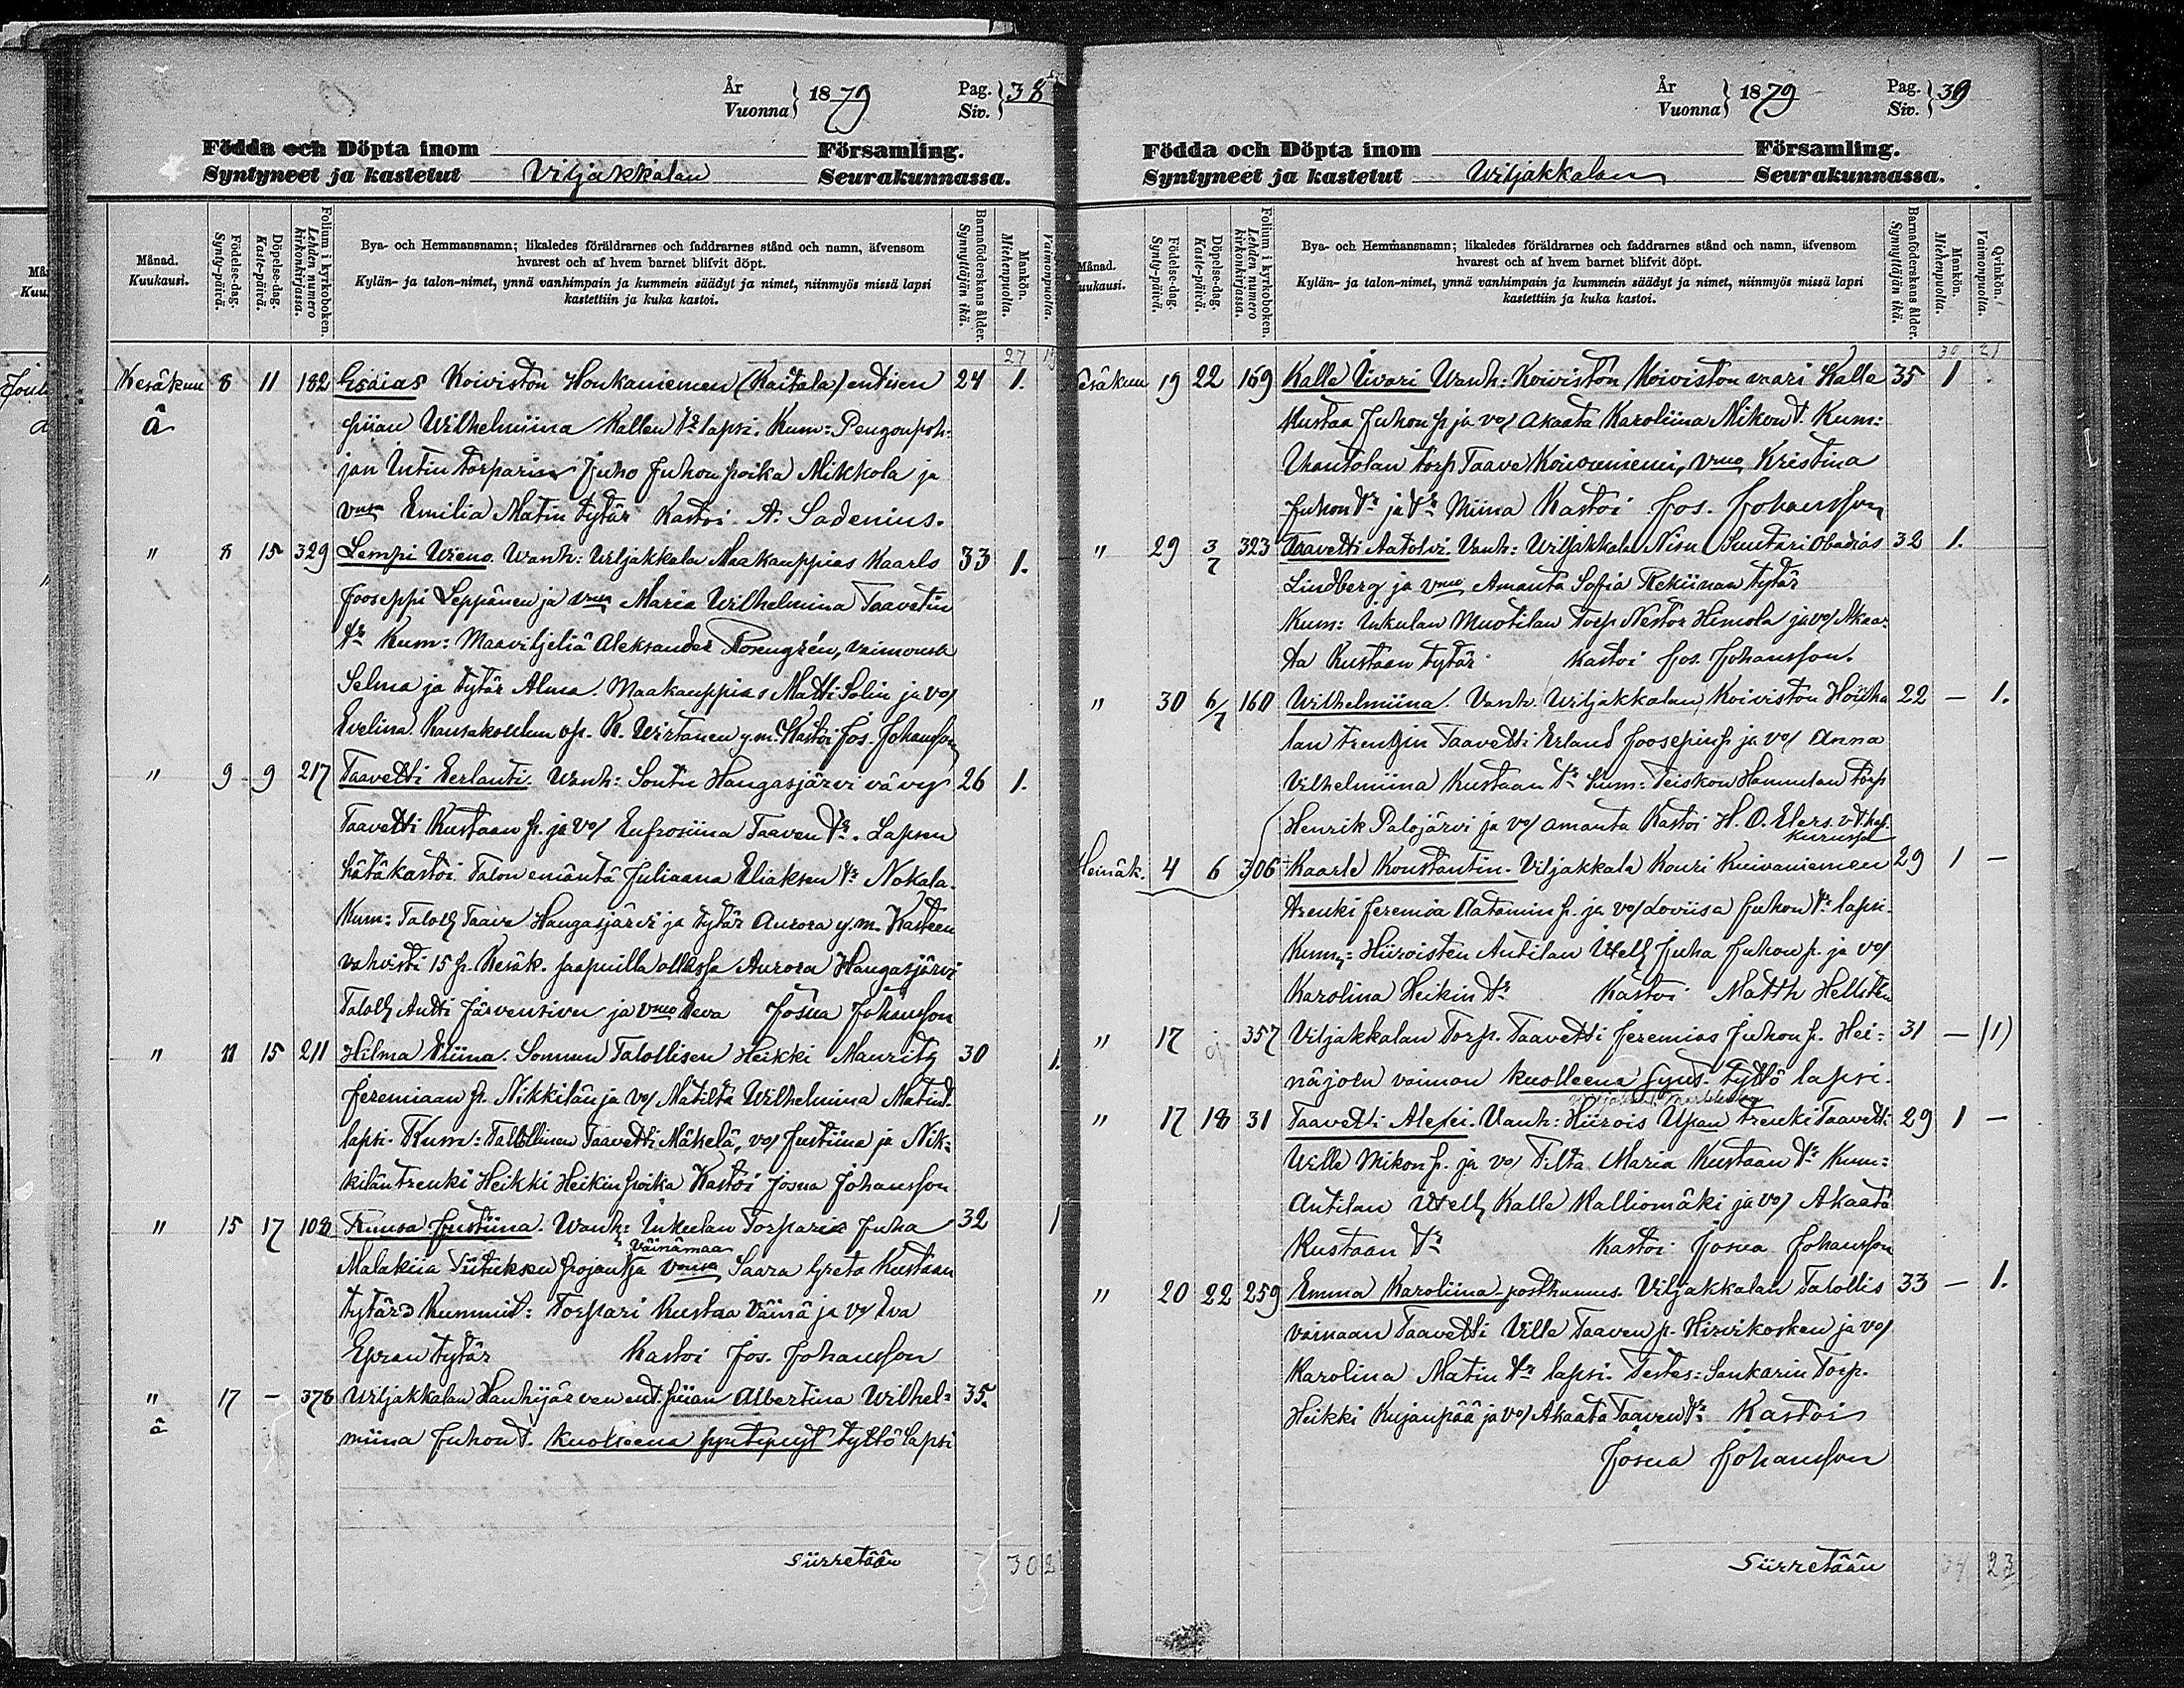 År
Vuonna } 1879 Pag. Siv. } 38
Födda och Döpta inom Församling.
Syntyneet ja kastetut Viljakkalan Seurakunnassa.
Månad. Kuukausi.
Födelse-dag. Synty-päivä.
Döpelse-dag. Kaste-päivä.
Folium i kyrkoboken. Lehden numero kirkonkirjassa.
Bya- och Hemmansnamn; likaledes föräldrarnes och faddrarnes stånd och namn, äfvensom
hvarest och af hvem barnet blifvit döpt.
Kylän- ja talon-nimet, ynnä vanhimpain ja kummein säädyt ja nimet, niinmyös missä lapsi
kastettiin ja kuka kastoi.
Barnaföderskans ålder. Synnyttäjän ikä.
Mankön. Miehenpuolia.
Vaimonpuolia.
27
Kesäkuu 8 11 182 Esaias Koiviston Honkaniemen (Kaitala) entisen 24 1.
â piian Wilhelmiina Kallen tr lapsi. Kum: Pengonpoh-
jan Intin torparin Juho Juhon poika Mikkola ja
vmo Emilia Matin tytär Kastoi A. Sadenius.
" 8 15 329 Lempi Wieno. Wanh: Viljakkala Maakauppias Kaarlo 33 1.
Jooseppi Leppänen ja vmo Maria Wilhelmina Taavetin
tr Kum: Maaviljeliä Aleksander Rosengrén, vaimonsa
Selma ja tytär Alma. Maakauppias Matti Solin ja vo/
Evelina. Kansakoulun op. K. Wirtanen y.m. Kastoi Jos. Johansson
" 9 9 217 Taavetti Eerlanti. Wanh: Sontin Haugasjärvi vävy 26 1.
Taavetti Kustaan p. ja vo/ Eufrosiina Taaven tr. Lapsen
hätäkastoi Talon emäntä Juliaana Eliaksen tr Nokala.
Kum: Taloll Taave Haugasjärvi ja tytär Aurora y.m. Kasteen
vahvisti 15 p. Kesäk. saapuilla ollessa Aurora Haugasjärvi
Taloll Antti Järvensivu ja vmo Eeva Josua Johansson
" 11 15 211 Hilma Eliina. Sonnun Talollisen Heikki Mauritz 30 1.
Jeremiaan p. Nikkilän ja vo/ Matilta Wilhelmina Matint.
lapsi. Kum: Talollinen Taavetti Mäkelä, vo/ Justiina ja Nik-
kilän trenki Heikki Heikin poika Kastoi Josua Johansson
" 15 17 108 Ruusa Justiina. Wanh: Inkulan Torparis Juha 32 1
Väinämaa
Malakiia Tiituksen pojan ja vmsa Saara Greta Kustaan
tytär Kummit: Torpari Kustaa Väinä ja vo/ Eva
Epran tytär Kastoi Jos. Johansson
" 17 – 378 Viljakkalan Hanhijärven ent. piian Albertina Wilhel- 35.
â miina Juhont. kuolleena syntynyt tyttö lapsi
Siirretään 30 2
År
Vuonna } 1879 Pag. Siv. } 39
Födda och Döpta inom Församling.
Syntyneet ja kastetut Wiljakkalan Seurakunnassa.
Månad. Kuukausi.
Födelse-dag. Synty-päivä.
Döpelse-dag. Kaste-päivä.
Folium i kyrkoboken. Lehden numero kirkonkirjassa.
Bya- och Hemmansnamn; likaledes föräldrarnes och faddrarnes stånd och namn, äfvensom
hvarest och af hvem barnet blifvit döpt.
Kylän- ja talon-nimet, ynnä vanhimpain ja kummein säädyt ja nimet, niinmyös missä lapsi
kastettiin ja kuka kastoi.
Barnaföderskans ålder. Synnyttäjän ikä.
Mankön. Miehenpuolia.
Qvinkön. Vaimonpuolia.
30 21
Kesäkuu 19 22 169 Kalle Iivari Wanh: Koiviston Koiviston vaari Kalle 35 1
Kustaa Juhon p ja vo/ Akaata Karoliina Mikont. Kum:
torp Taave Koivuniemi, vmo Kristina
Juhon tr ja tr Miina Kastoi Jos. Johansson
" 29 3/7 323 Taavetti Aatolvi. Vanh: Viljakkala Nisu Suutari Obadias 32 1.
Lindberg ja vmo Amanta Sofia Rekiinan tytär
Kum: Inkulan Muotilan Torp Nestor Himola ja vo/ Akaa-
ta Kustaan tytär Kastoi Jos. Johansson.
" 30 6/7 160 Wilhelmiina. Vanh. Wiljakkalan Koiviston Höitka 22 – 1.
lan trengin Taavetti Erland Joosepin p ja vo/ Anna
Vilhelmiina Kustaan tr Kum: Teiskon Hannulan torp
Henrik Palojärvi ja vo/ Amanta Kastoi H. O. Elers. v.t. kap.
Kurussa
Heinäk. 4 6 306 Kaarle Konstantin. Viljakkala Kouri Kuivaniemen 29 1 –
trenki Jeremia Aatamin p. ja vo/ Loviisa Juhon tr lapsi.
Kum: Hiiroisten Antilan Itell Juha Juhon p. ja vo/
Karolina Heikin tr Kastoi Matth Hellstén
" 17 ej 357 Viljakkalan Torp. Taavetti Jeremias Juhon p. Hei- 31 – (1)
näjoen vaimon kuolleena synt. tyttö lapsi.
" 17 18 31 Taavetti Aleksi. Vanh: Hiirois Upan trenki Taavetti 29 1 –
Ville Mikon p. ja vo/ Tilta Maria Kustaan tr Kum:
Antilan Itell Kalle Kalliomäki ja vo/ Akaata
Kustaan tr Kastoi Josua Johansson
" 20 22 259 Emma Karoliina posthumus. Viljakkalan Talollis 33 – 1.
vainaan Taavetti Ville Taaven p. Hirvikosken ja vo/
Karolina Matin tr lapsi. Testes: Sankarin Torp.
Heikki Kujanpää ja vo/ Akaata Taaven tr Kastoi
Josua Johansson
Siirretään 34 23